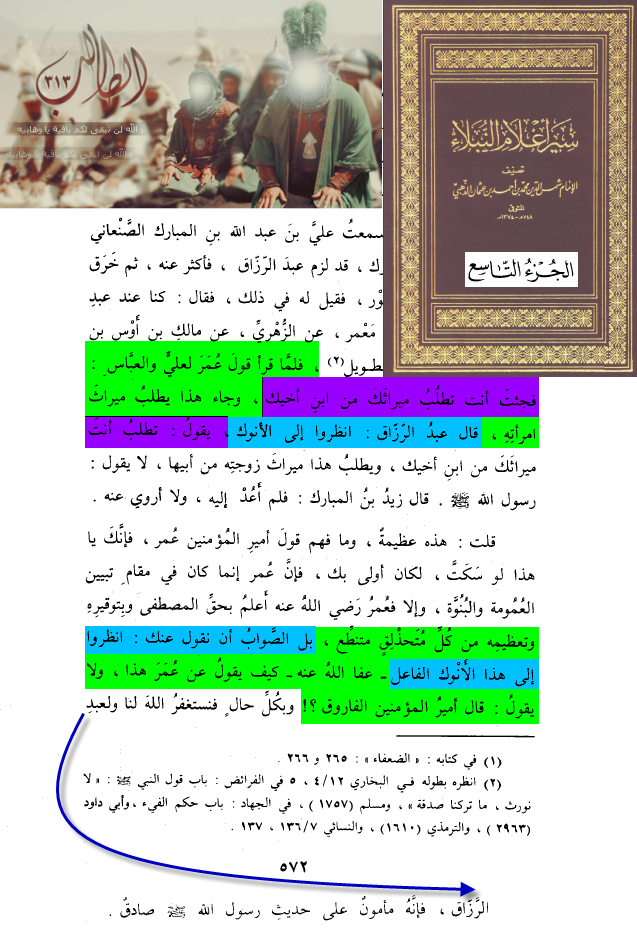 الطالب
٣١٣
والله لن نبقي لكم باقية يا وهابيه
والله لن نبقي لكم باقية يا وهابيه
سير أعلام النبلاء
تصنيف
الإمام شمس الدين محمد بن أحمد بن عثمان الذهبي
المتوفى
٧٤٨هـ - ١٣٧٤م
الجُزءُ التَّاسع
سمعتُ عليَّ بنَ عبد الله بنِ المبارك الصَّنْعاني
رك ، قد لزم عبدَ الرّزّاق ، فأكثر عنه ، ثم خَرَق
ثَوْر ، فقيل له في ذلك ، فقال : كنا عند عبدِ
مَعْمر ، عن الزُّهْريِّ ، عن مالكِ بن أَوْس بن
طويل(٢) ، فلمَّا قرأ قولَ عُمَرَ لعليٍّ والعبَّاسِ :
فجئتَ أنت تطلُبُ ميراثَكَ من ابنِ أخيك ، وجاء هذا يطلبُ ميراثَ
امرأتِهِ ، قال عبدُ الرّزّاق : انظروا إلى الأنوك ، يقولُ : تطلبُ أنتَ
ميراثَكَ من ابنِ أخيك ، ويطلبُ هذا ميراثَ زوجتِهِ من أبيها ، لا يقول :
رسول الله ﷺ . قال زيدُ بنُ المبارك : فلم أَعُدْ إليه ، ولا أروي عنه .
قلت : هذه عظيمةٌ ، وما فهم قولَ أميرِ المُؤمنين عُمر ، فإنَّكَ يا
هذا لو سَكَتَّ ، لكان أولى بك ، فإنَّ عُمر إنما كان في مقامِ تبيين
العُمُومة والبُنُوَّة ، وإلا فعُمرُ رَضي اللهُ عنه أعلمُ بحقِّ المصطفى وبِتوقيرِهِ
وتعظيمِه من كُلِّ مُتَحذْلِقٍ متنطِّع ، بل الصَّوابُ أن نقول عنك : انظروا
إلى هذا الأَنْوك الفاعل ـ عفا اللهُ عنه ـ كيف يقولُ عن عُمَرَ هذا ، ولا
يقولُ : قال أميرُ المؤمنين الفاروق ؟! وبكُلِّ حالٍ فنستغفرُ اللهَ لنا ولعبدِ
(١) في كتابه : « الضعفاء » : ٢٦٥ و ٢٦٦ .
(٢) انظره بطوله في البخاري ٤/١٢ ، ٥ في الفرائض : باب قول النبي ﷺ : « لا
نورث ، ما تركنا صدقة » ، ومسلم (١٧٥٧) ، في الجهاد : باب حكم الفيء ، وأبي داود
(٢٩٦٣) ، والترمذي (١٦١٠) ، والنسائي ١٣٦/٧ ، ١٣٧ .
٥٧٢
الرّزّاق ، فإنَّهُ مأمونٌ على حديثِ رسول الله ﷺ صادقٌ .